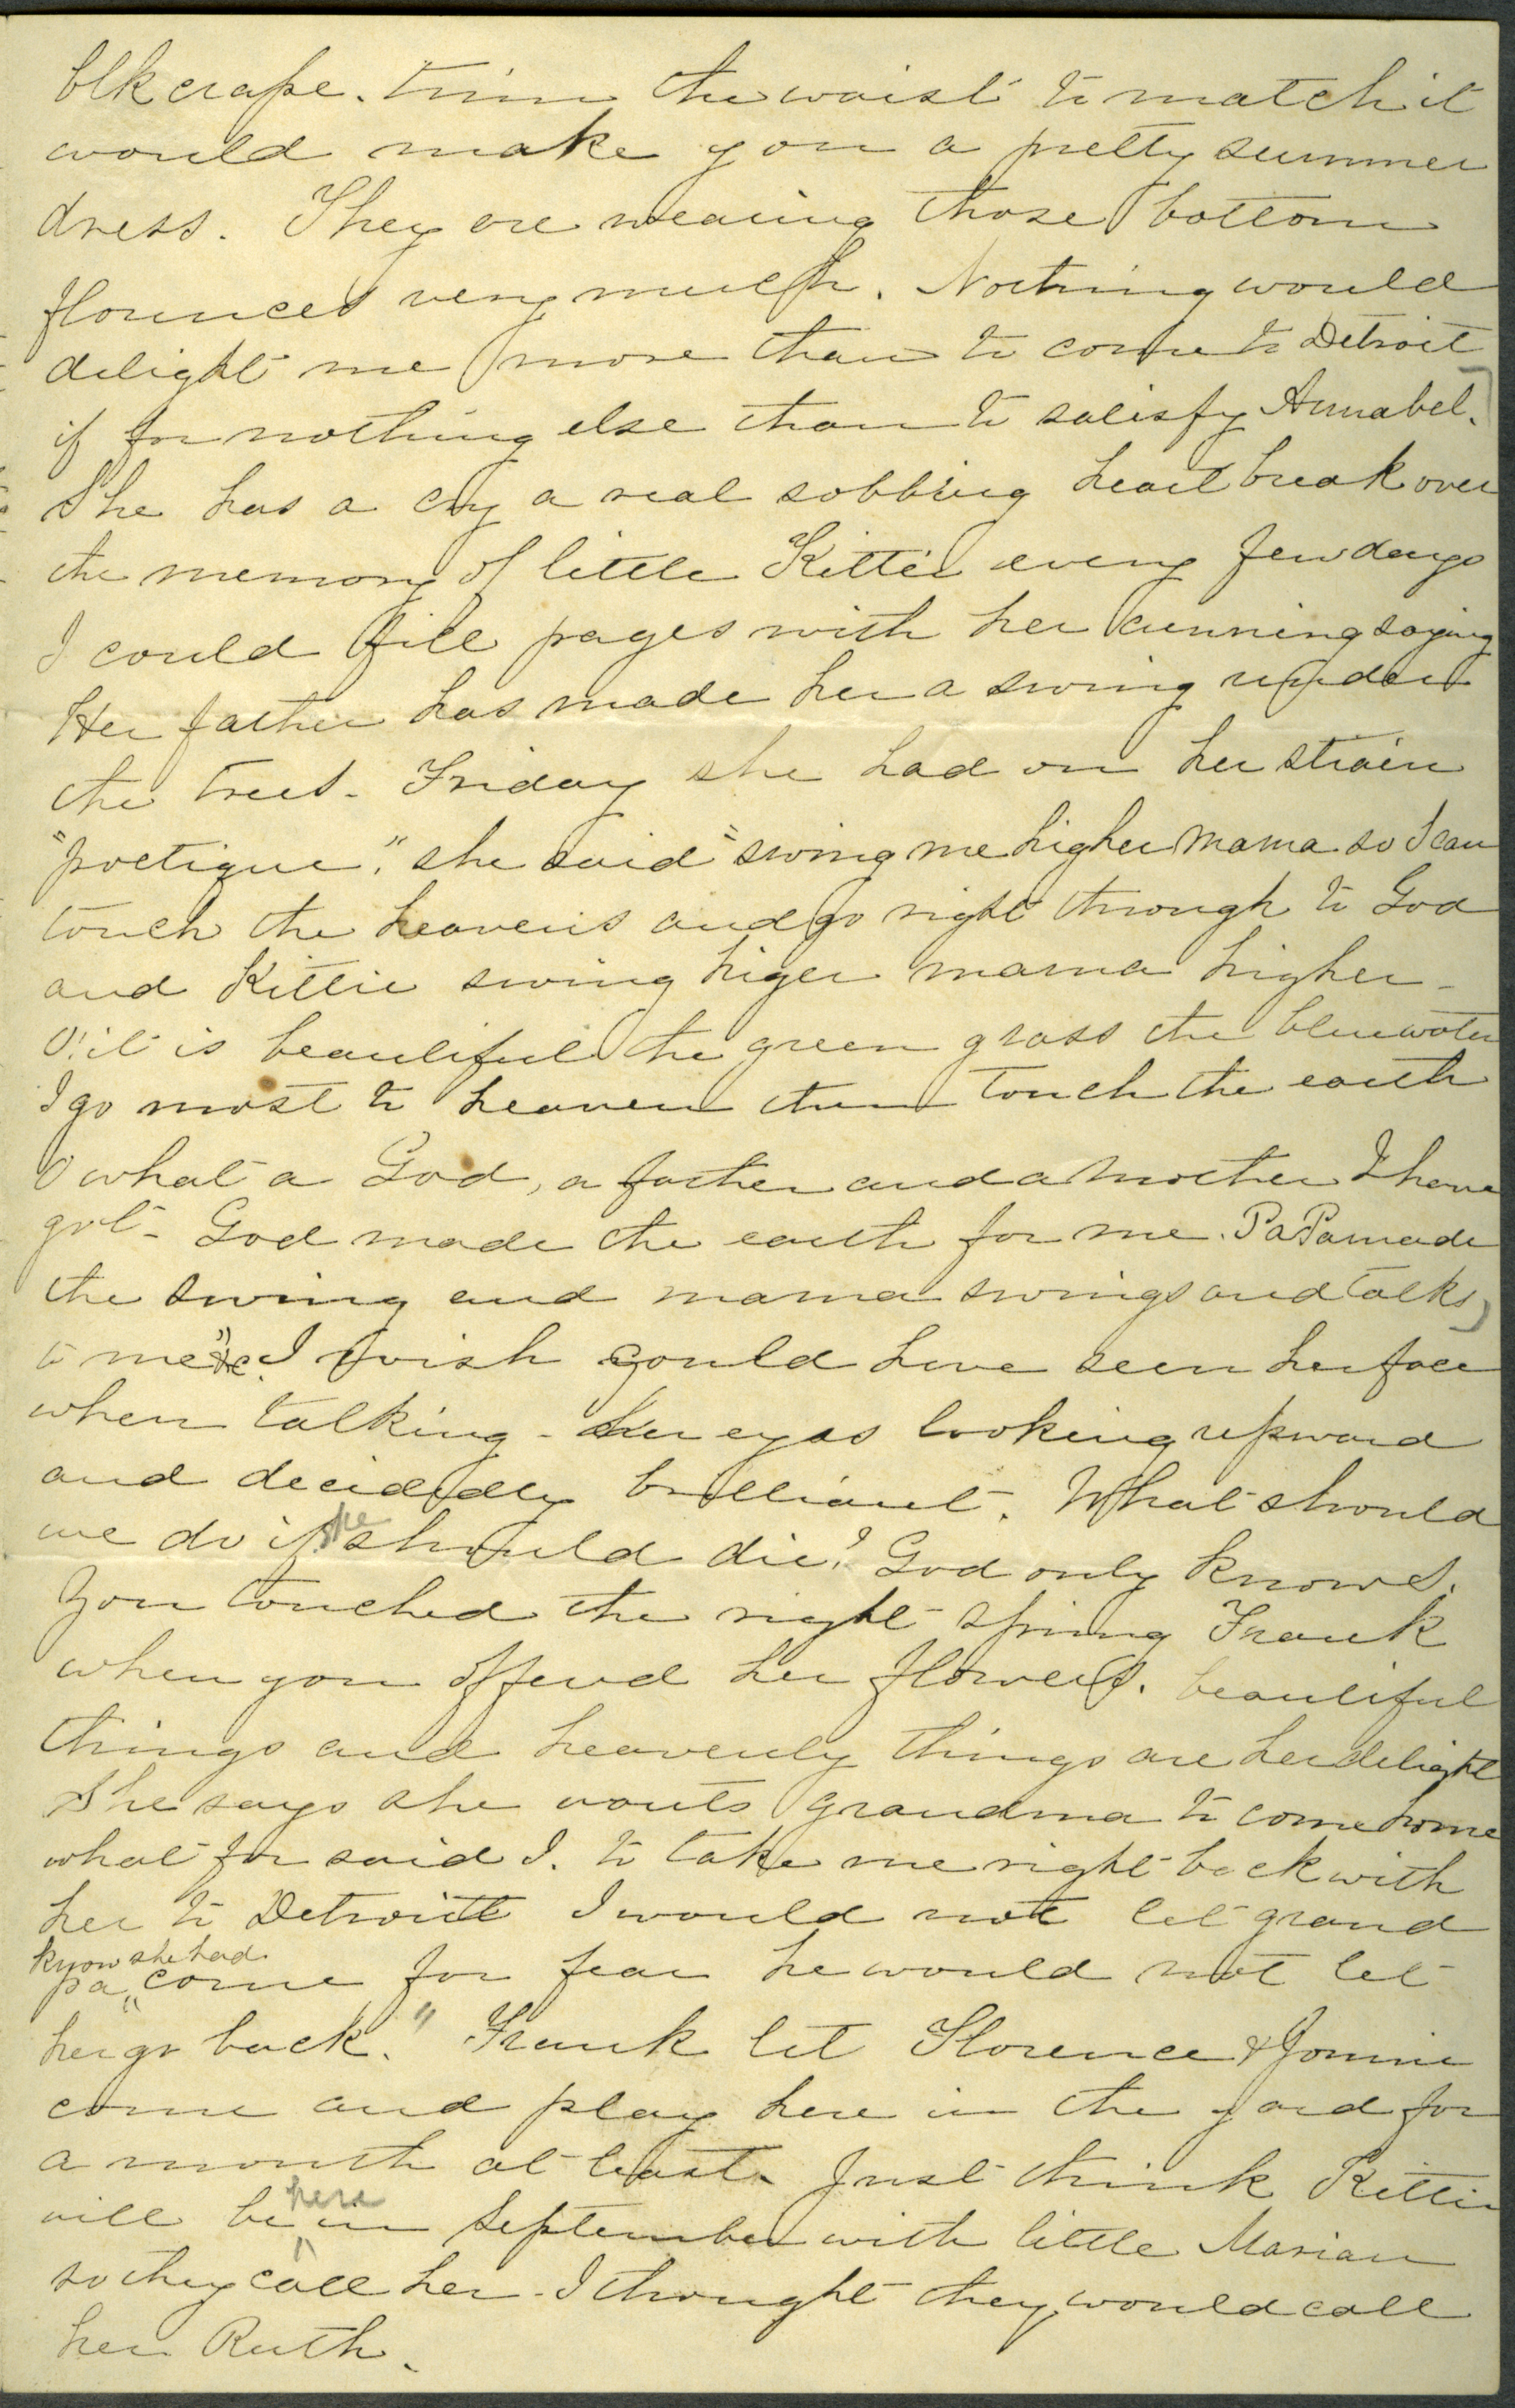 blk crape. trim the waist to match it
would make you a pretty summer
dress. They are wearing those bottom
flounces very much. Nothing would
delight me more than to come to Detroit
if for nothing else than to satisfy Annabel.
She has a cry a real sobbing heart break over
the memory of little Kittie every few days
I could fill pages with her cunning saying
Her father has made her a swing under
the trees. Friday she had on her strain
"poetique", she said "swing me higher mama so I can
touch the heavens and go right through to God
and Kittie swing higer mama higher-
O! it is beautiful the green grass the blue water
I go most to heaven then touch the earth
O what a God, a father and a mother I have
got- God made the earth for me. PaPa made
the swing and mama swings and talks
to me" &c. I wish could have seen her face
when talking - her eyes looking upward
and decidedly brilliant. What should
we do if she should die? God only knows.
You touched the right spring Frank
when you offerd her flowers. beautiful
things and heavenly things are her delight
She says she wants grandma to come home
what for said I. to take me right back with
her to Detroitt I would not let grand
pa know she had come for fear he would not let
her go back." Frank let Florence &
come and play here in the yard for
a month at least. Just think Kittie
will be here in September with little Marian
so they call her - I thought they would call
her Ruth.